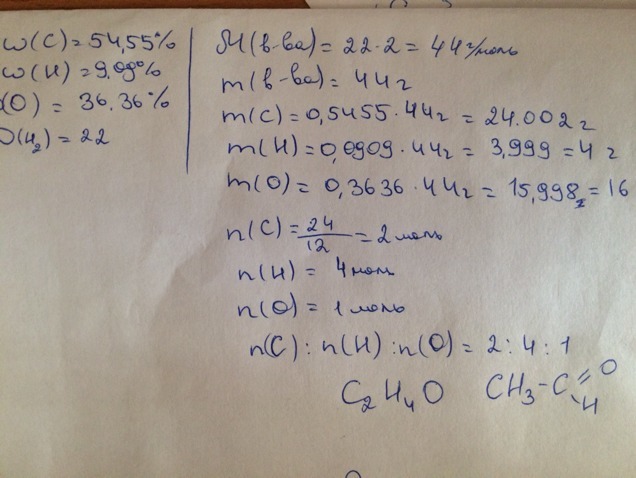 w(C)=54,55%
w(H)=9,09%
(O) = 36.36%
D(H₂) = 22
M(в-ва) = 22·2 = 44 г/моль
m(в-ва) = 44г
m(C) = 0,5455·44г = 24.002г
m(H) = 0,0909·44г = 3,999 = 4г
m(O) = 0,3636·44г = 15,998г = 16
n(C) = 24/12 = 2 моль
n(H) = 4 моль
n(O) = 1 моль
n(C) : n(H) : n(O) = 2 : 4 : 1
C₂H₄O CH₃-C
=O
-H